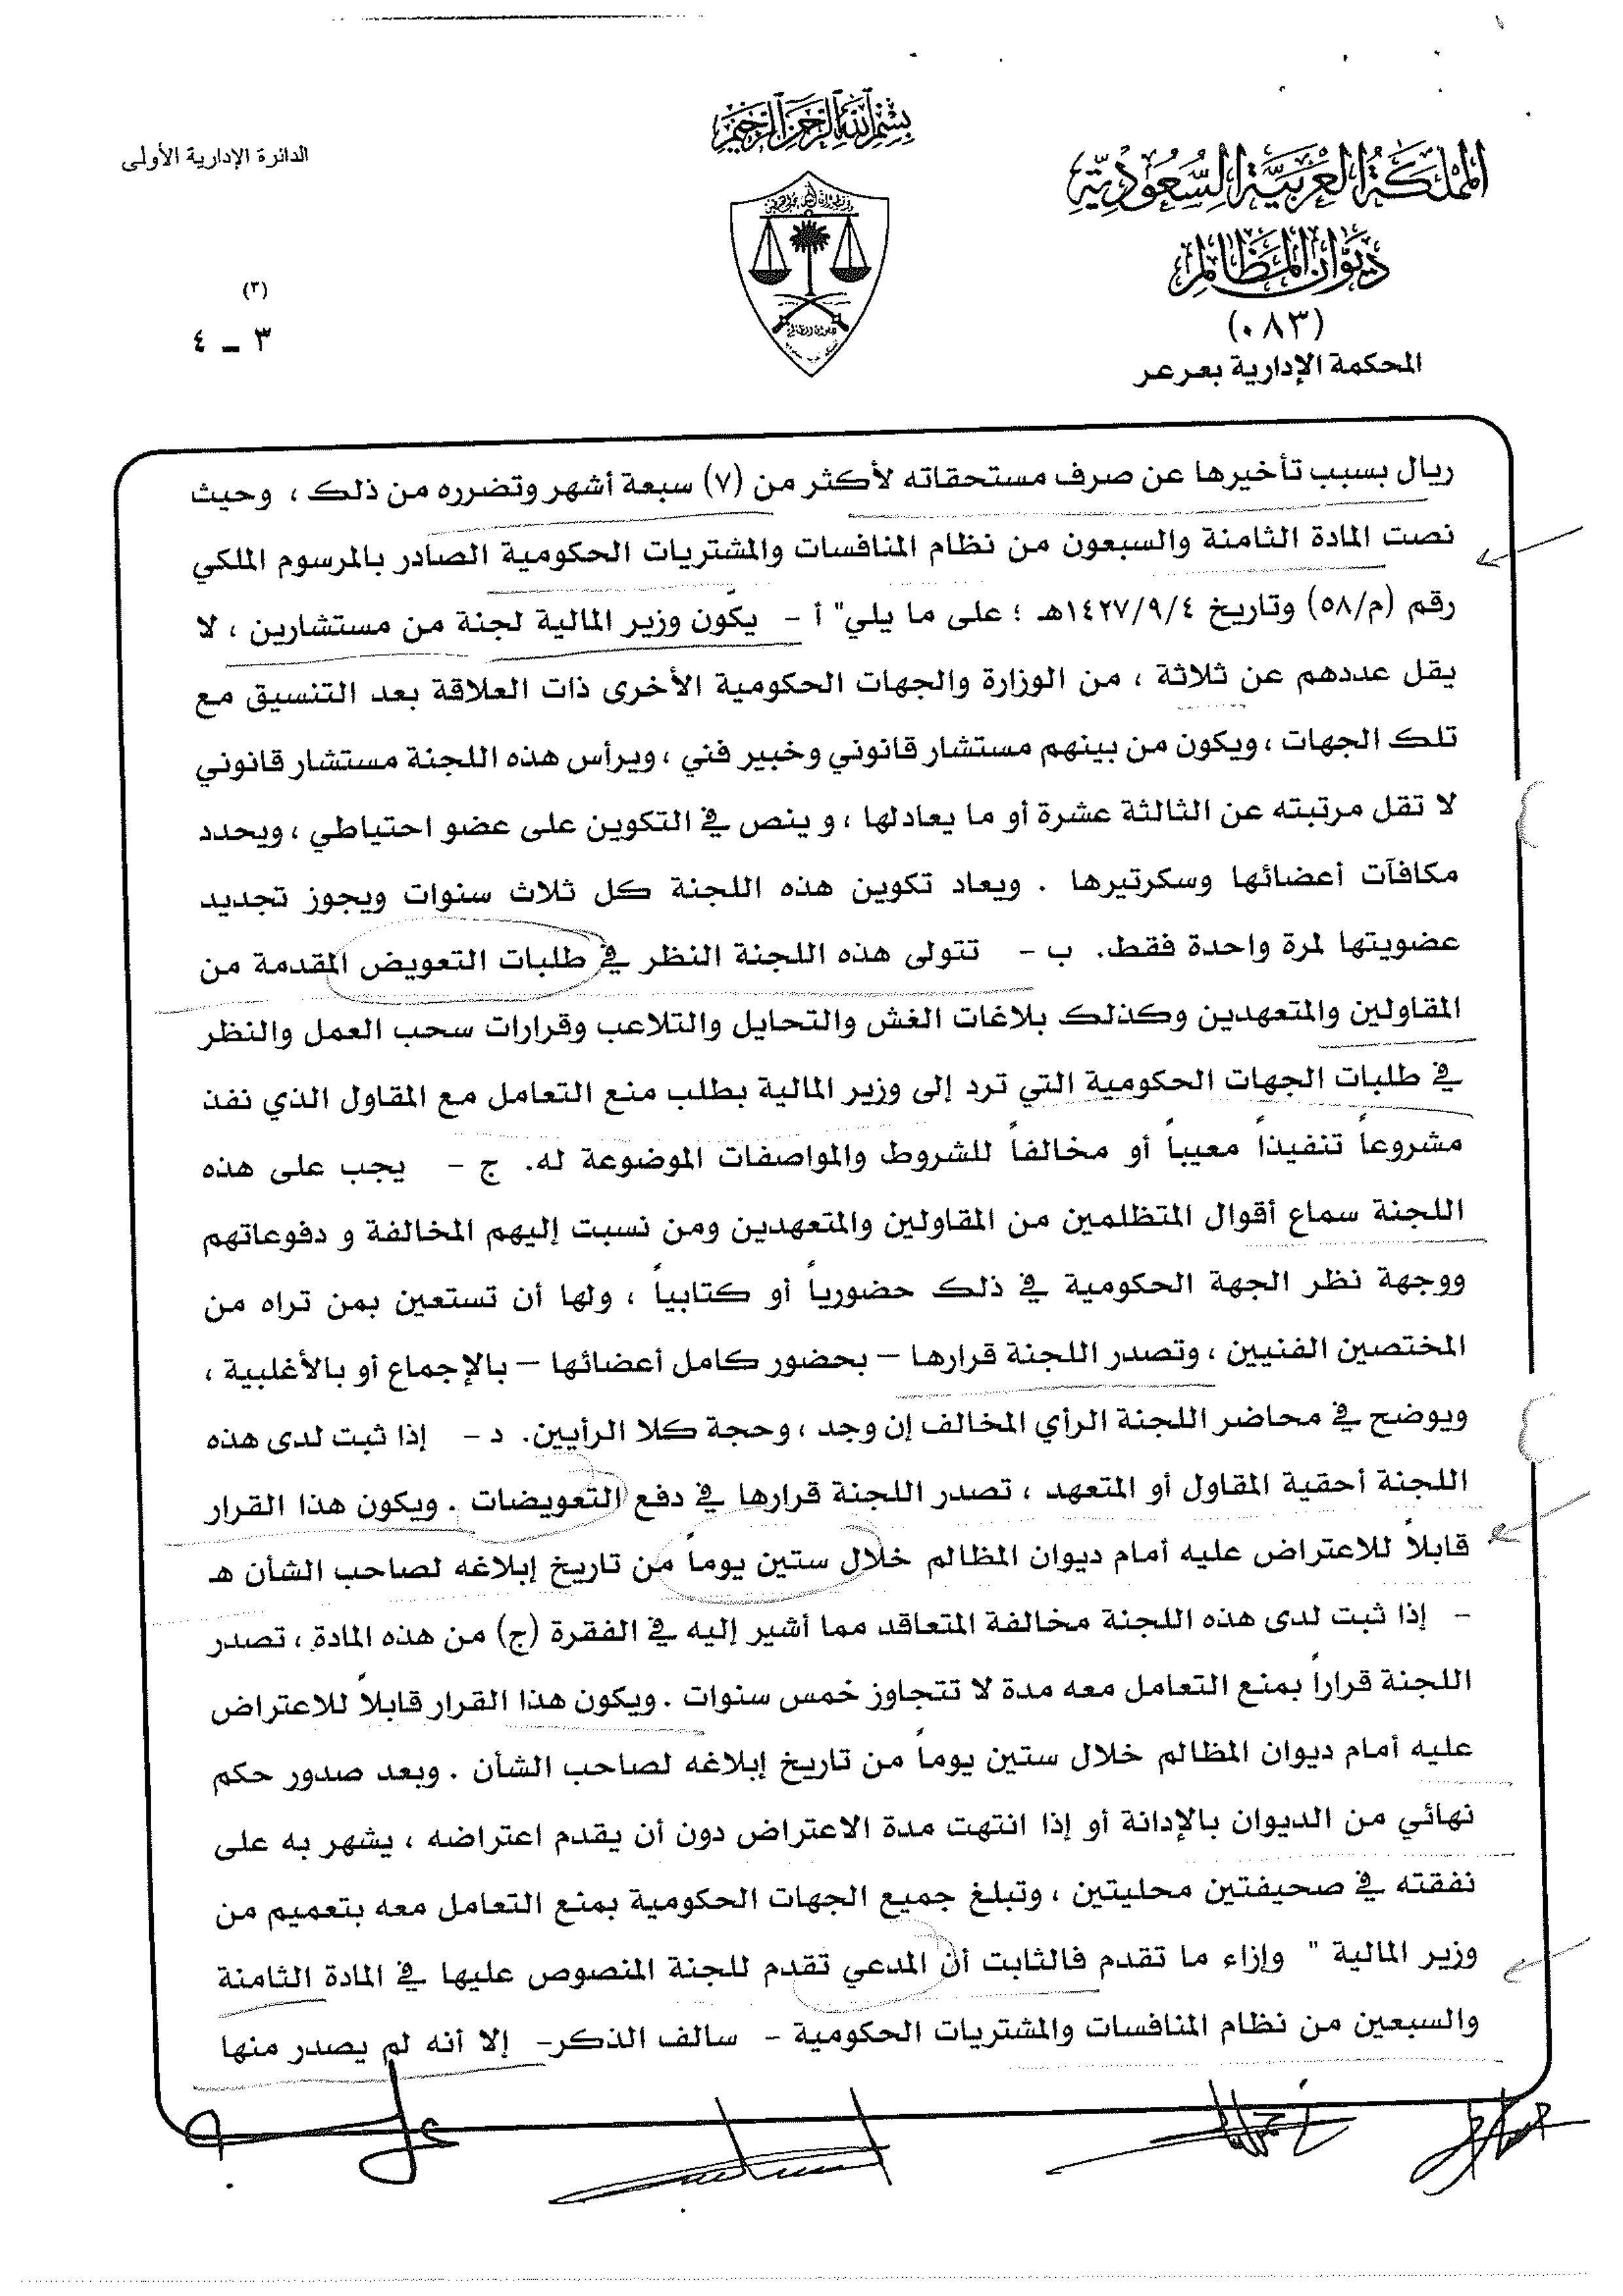 بسم الله الرحمن الرحيم
المملكة العربية السعودية
ديوان المظالم
(٠٨٣)
المحكمة الإدارية بعرعر
الدائرة الإدارية الأولى
(٣)
٣ - ٤
ديوان المظالم
ريال بسبب تأخيرها عن صرف مستحقاته لأكثر من (٧) سبعة أشهر وتضرره من ذلك ، وحيث
نصت المادة الثامنة والسبعون من نظام المنافسات والمشتريات الحكومية الصادر بالمرسوم الملكي
رقم (م/٥٨) وتاريخ ١٤٢٧/٩/٤هـ ؛ على ما يلي" أ - يكّون وزير المالية لجنة من مستشارين ، لا
يقل عددهم عن ثلاثة ، من الوزارة والجهات الحكومية الأخرى ذات العلاقة بعد التنسيق مع
تلك الجهات ، ويكون من بينهم مستشار قانوني وخبير فني ، ويرأس هذه اللجنة مستشار قانوني
لا تقل مرتبته عن الثالثة عشرة أو ما يعادلها ، و ينص في التكوين على عضو احتياطي ، ويحدد
مكافآت أعضائها وسكرتيرها . ويعاد تكوين هذه اللجنة كل ثلاث سنوات ويجوز تجديد
عضويتها لمرة واحدة فقط. ب - تتولى هذه اللجنة النظر في طلبات التعويض المقدمة من
المقاولين والمتعهدين وكذلك بلاغات الغش والتحايل والتلاعب وقرارات سحب العمل والنظر
في طلبات الجهات الحكومية التي ترد إلى وزير المالية بطلب منع التعامل مع المقاول الذي نفذ
مشروعاً تنفيذاً معيباً أو مخالفاً للشروط والمواصفات الموضوعة له. ج - يجب على هذه
اللجنة سماع أقوال المتظلمين من المقاولين والمتعهدين ومن نسبت إليهم المخالفة و دفوعاتهم
ووجهة نظر الجهة الحكومية في ذلك حضورياً أو كتابياً ، ولها أن تستعين بمن تراه من
المختصين الفنيين ، وتصدر اللجنة قرارها – بحضور كامل أعضائها – بالإجماع أو بالأغلبية ،
ويوضح في محاضر اللجنة الرأي المخالف إن وجد ، وحجة كلا الرأيين. د - إذا ثبت لدى هذه
اللجنة أحقية المقاول أو المتعهد ، تصدر اللجنة قرارها في دفع التعويضات . ويكون هذا القرار
قابلاً للاعتراض عليه أمام ديوان المظالم خلال ستين يوماً من تاريخ إبلاغه لصاحب الشأن هـ
- إذا ثبت لدى هذه اللجنة مخالفة المتعاقد مما أشير إليه في الفقرة (ج) من هذه المادة ، تصدر
اللجنة قراراً بمنع التعامل معه مدة لا تتجاوز خمس سنوات . ويكون هذا القرار قابلاً للاعتراض
عليه أمام ديوان المظالم خلال ستين يوماً من تاريخ إبلاغه لصاحب الشأن . وبعد صدور حكم
نهائي من الديوان بالإدانة أو إذا انتهت مدة الاعتراض دون أن يقدم اعتراضه ، يشهر به على
نفقته في صحيفتين محليتين ، وتبلغ جميع الجهات الحكومية بمنع التعامل معه بتعميم من
وزير المالية " وإزاء ما تقدم فالثابت أن المدعي تقدم للجنة المنصوص عليها في المادة الثامنة
والسبعين من نظام المنافسات والمشتريات الحكومية - سالف الذكر- إلا أنه لم يصدر منها